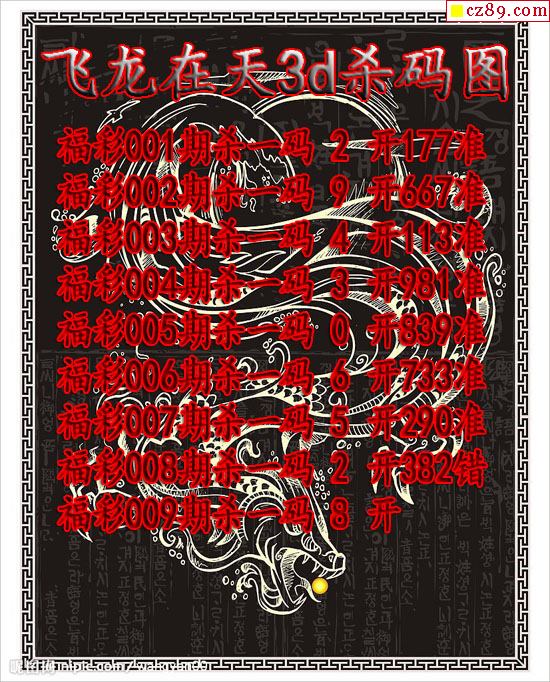 cz89.com
飞龙在天3d杀码图
福彩001期杀一码 2 开177准
福彩002期杀一码 9 开667准
福彩003期杀一码 4 开113准
福彩004期杀一码 3 开981准
福彩005期杀一码 0 开839准
福彩006期杀一码 6 开733准
福彩007期杀一码 5 开290准
福彩008期杀一码 2 开382错
福彩009期杀一码 8 开